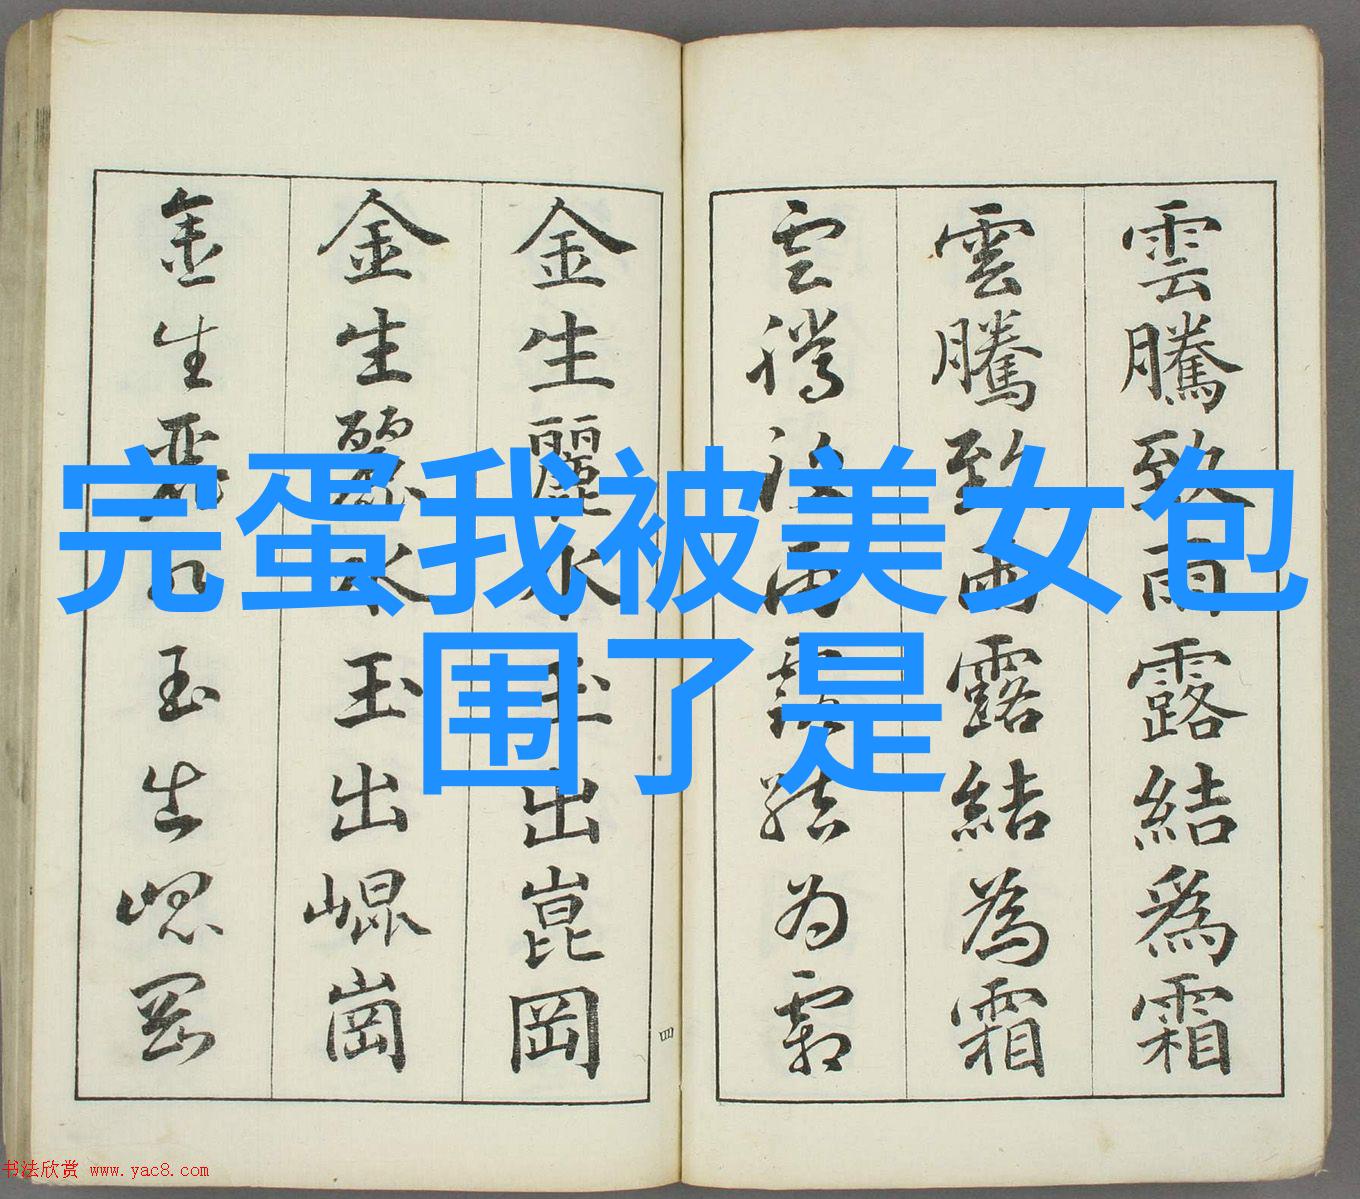 雲騰致雨露結為霜
雲騰致雨露結為霜
雲騰致雨露結为霜
金生麗水玉出崑岡
金生麗水玉出崐崗
金生麗水玉出崐岡
四
完蛋我被美女包
围了是
书法欣赏 www.yac8.com